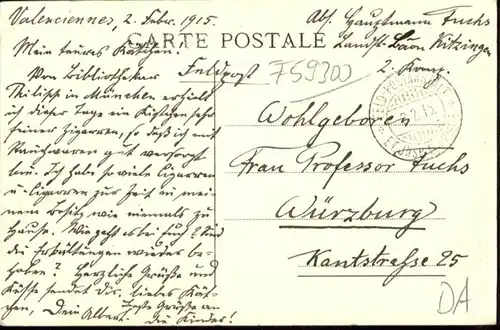 Valenciennes, 2. Febr. 1915.
Mein teures Kätchen.
Von Bibliothekar
Hilisch in München erhielt
ich dieser Tage ein Kistchen sehr
feiner Zigarren, so daß ich mit
Rauchwaren gut versorgt
bin. Ich habe so viele Cigarren
u. Cigarren zur Zeit in mei-
nem Besitz wie niemals zu
Hause. Wie geht es bei Euch? Sind
die Erkältungen wieder be-
hoben? Herzliche Grüße und
Küsse sendet dir, liebes Kät-
chen, Dein Albert. Beste Grüße an
die Kinder!
CARTE POSTALE
Abs. Hauptmann Fuchs
Landst. Baon Kitzingen
2. Komp.
Feldpost
759300
Wohlgeboren
Frau Professor Fuchs
Würzburg
Kantstrasse 25
DA